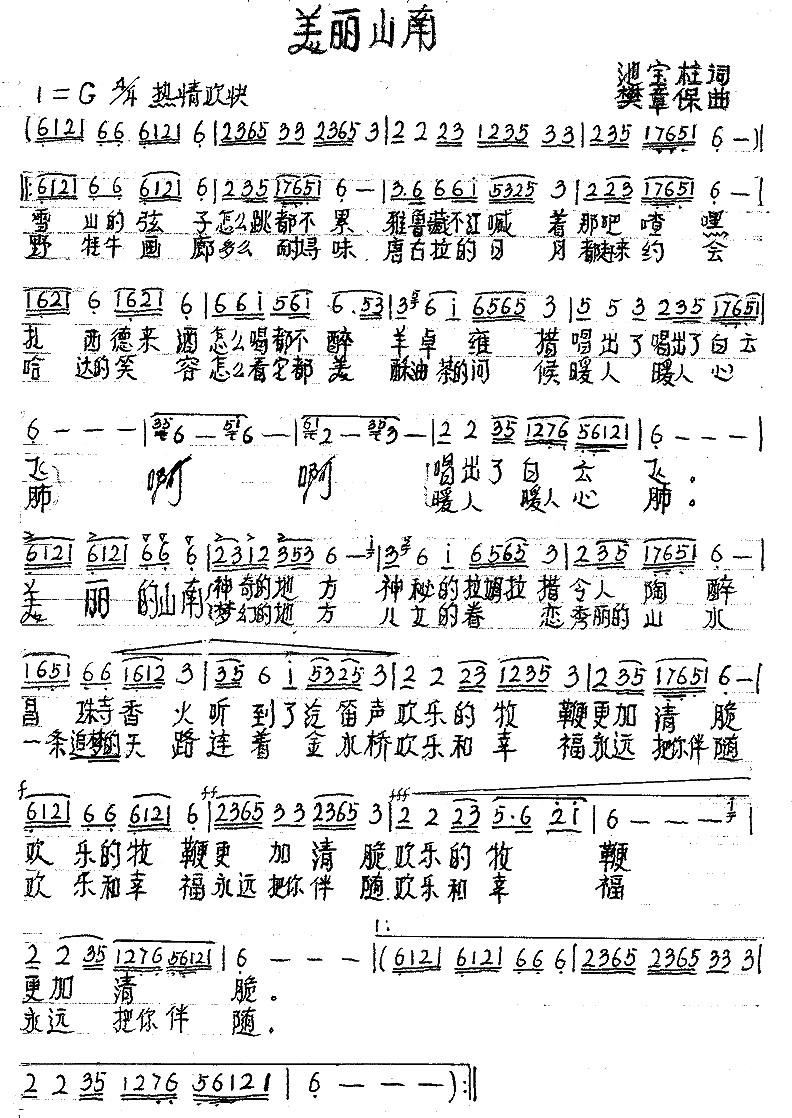 美丽山南
池宝柱词
1=G 4/4 热情欢快
樊章保曲
(6121 66 6121 6|2365 33 2365 3|2 2 23 1235 33|235 17651 6 —)|
‖:6121 66 6121 6|235 17651 6 —|3.6 66i 5325 3|223 17651 6 —|
雪山的弦子怎么跳都不累 雅鲁藏不江喊着那吧喳嘿
野牦牛画廊多么耐寻味 唐古拉的日月都赶来约会
1621 6 1621 6|66i 56i 6.53|3 6 i 6565 3|5 5 3 235 17651|
扎西德来酒怎么喝都不醉 羊卓雍措唱出了唱出了白云
哈达的笑容怎么看它都美 酥油茶的问候暖人暖人心
6 — — —|6 — 6 —|2 — 3 —|2 2 35 1276 56121|6 — — —|
飞 啊 啊 唱出了白云飞。
肺 暖人暖人心肺。
6121 6121 66 6|2312 353 6 —|3 6 i 6565 3|235 17651 6 —|
美丽的山南神奇的地方 神秘的拉姆拉措令人陶醉
梦幻的地方 儿女的眷恋秀丽的山水
1651 66 1612 3|35 6 i 5325 3|2 2 23 1235 3|235 17651 6 —|
昌珠寺香火听到了泛笛声欢乐的牧鞭更加清脆
一条追梦的天路连着金水桥欢乐和幸福永远把你伴随
f ff fff
6121 66 6121 6|2365 33 2365 3|2 2 23 5.6 2i|6 — — |
欢乐的牧鞭更加清脆欢乐的牧鞭
欢乐和幸福永远把你伴随欢乐和幸福
1:
2 2 35 1276 56121|6 — — —|(6121 6121 66 6|2365 2365 33 3|
更加清脆。
永远把你伴随。
2 2 35 1276 56121|6 — — —):‖